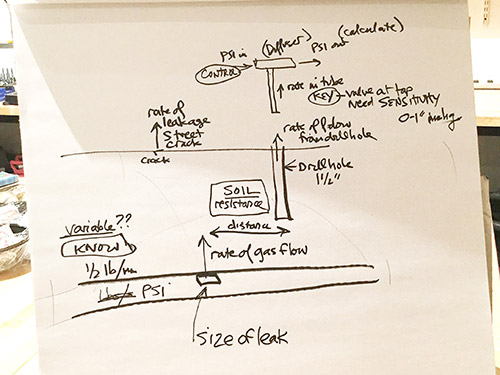 (calculate)
PSI in (Diffuser) PSI out
CONTROL
rate in tube
KEY - valve at top
need SENSITIVITY
0-1" in wtg
rate of
leakage
Street
crack
crack
rate of flow
from drill hole
Drill hole
1 1/2"
SOIL
resistance
distance
variable??
KNOW
1/2 lb/
rate of gas flow
PSI
size of leak